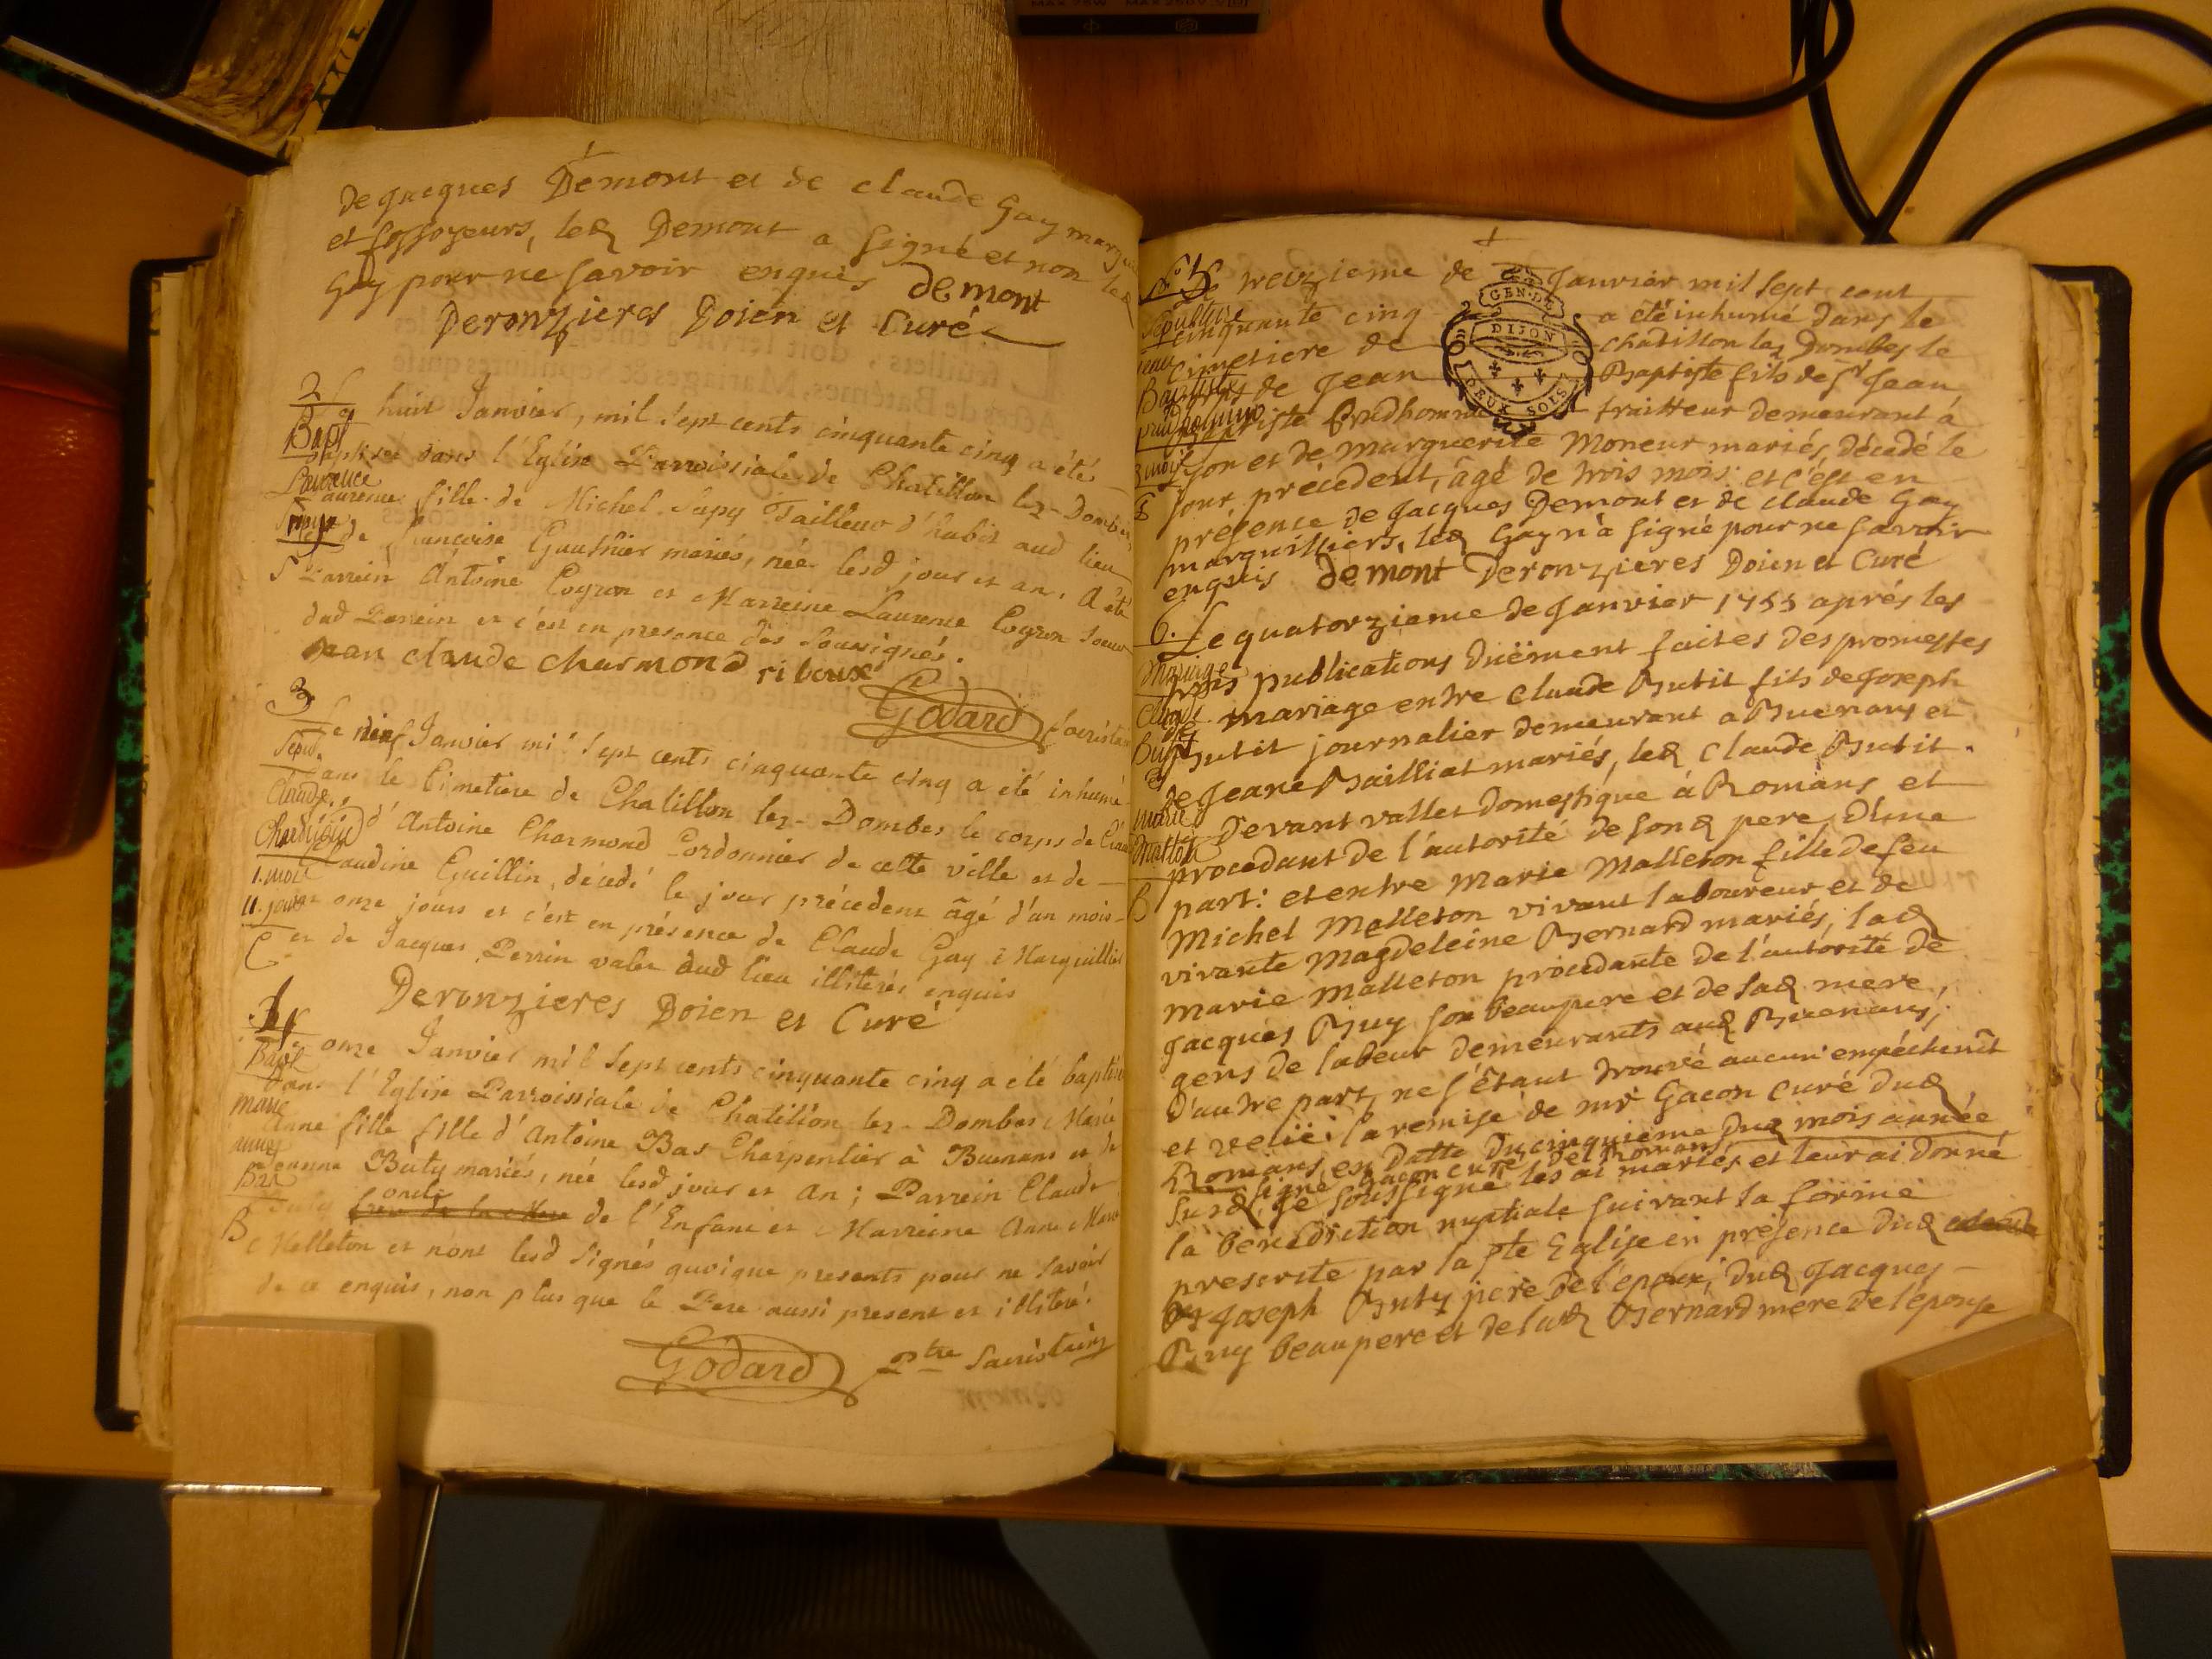 de Jacques Demont et de claude Gay
et fossoyeurs, led Demont a signé et non led
Gay pour ne savoir enquis demont
Deronzieres Doien et Curé
2
Bapt
Laurence
Le huit Janvier, mil sept cents cinquante cinq a été
baptisée dans l'Eglise Parroissiale de Chatillon lez-Dombes
Laurence fille de Michel Sapy Tailleur d'habit aud lieu
et de françoise Gauthier mariés, née lesd jour et an. A été
S Parrein Antoine Poyron et Marreine Laurence Poyron soeur
dud Parrein et c'est en presence des soussignés.
jean claude charmond riboux
Godard sacristain
3
Sepul.
Claude
Charmond
1. mois
11. jours
Le neuf Janvier mil sept cents cinquante cinq a été inhumé
dans le Cimetiere de Chatillon lez-Dombes le corps de
d'Antoine Charmond Cordonnier de cette ville et de
Claudine Guillin, décédé le jour précedent âgé d'un mois
et onze jours et c'est en présence de Claude Gay Marguillier
C et de Jacques Perrin valet dud lieu illiterés enquis
Deronzieres Doien et Curé
Bapt
marie
anne
Bas
Le onze Janvier mil sept cents cinquante cinq a été baptisée
dans l'Eglise Parroissiale de Chatillon lez-Dombes Marie
Anne fille fille d'Antoine Bas Charpentier à Buenans et de
Jeanne Buty mariés, née lesd jour et an; Parrein Claude
oncle
B Buty frere de la Mere de l'Enfant et Marreine Anne Marie
Melleton et n'ont lesd signés quoique presents pour ne savoir
de ce enquis, non plus que le Pere aussi present et illiteré.
Godard ptre sacristain
5
Sepulture
jean
Baptiste
prudhomme
3 mois
Le treizieme de Janvier mil sept cent
cinquante cinq a été inhumé dans le
Cimetiere de chatillon lez Dombes le
corps de Jean Baptiste fils de Sr Jean
Baptiste Prudhomme traitteur demeurant à
GEN. DE DIJON
DEUX SOLS
Lyon et de Marguerite Moneur mariés, décédé le
jour précédent, âgé de trois mois: et c'est en
présence de Jacques Demont et de claude Gay
marguilliers, led Gay n'a signé pour ne savoir
enquis demont Deronzieres Doien et Curé
6.
mariage
Claude
Butit
et
marie
malleton
B
Le quatorzieme de Janvier 1755 aprés les
trois publications duëment faites des promesses
de mariage entre Claude Butit fils de Joseph
Butit journalier demeurant a Buenans et
de Jeane Bailliat mariés, led Claude Butit
devant vallet domestique à Romans et
procedant de l'autorité de sond pere, D'une
part: et entre Marie Malleton fille de feu
Michel Melleton vivant laboureur et de
vivante Magdeleine Bernard mariés, lad
marie Malleton procedante de l'autorité de
Jacques Buy son beaupere et de sad mere,
gens de labeur demeurants aud Buenans,
D'autre part, ne s'étant trouvé aucun empéchemt
et veüe la remise de mr Gacon Curé dud
Romans en datte du cinquieme dud mois année
signé Gacon curé de Romans
susd, Je soussigné les ai mariés et leur ai donné
la bénédiction nuptiale suivant la forme
prescrite par la ste Eglise en présence dud
Joseph Buty pere de l'epoux, dud Jacques
Buy beaupere et de lad Bernard mere de l'épouse